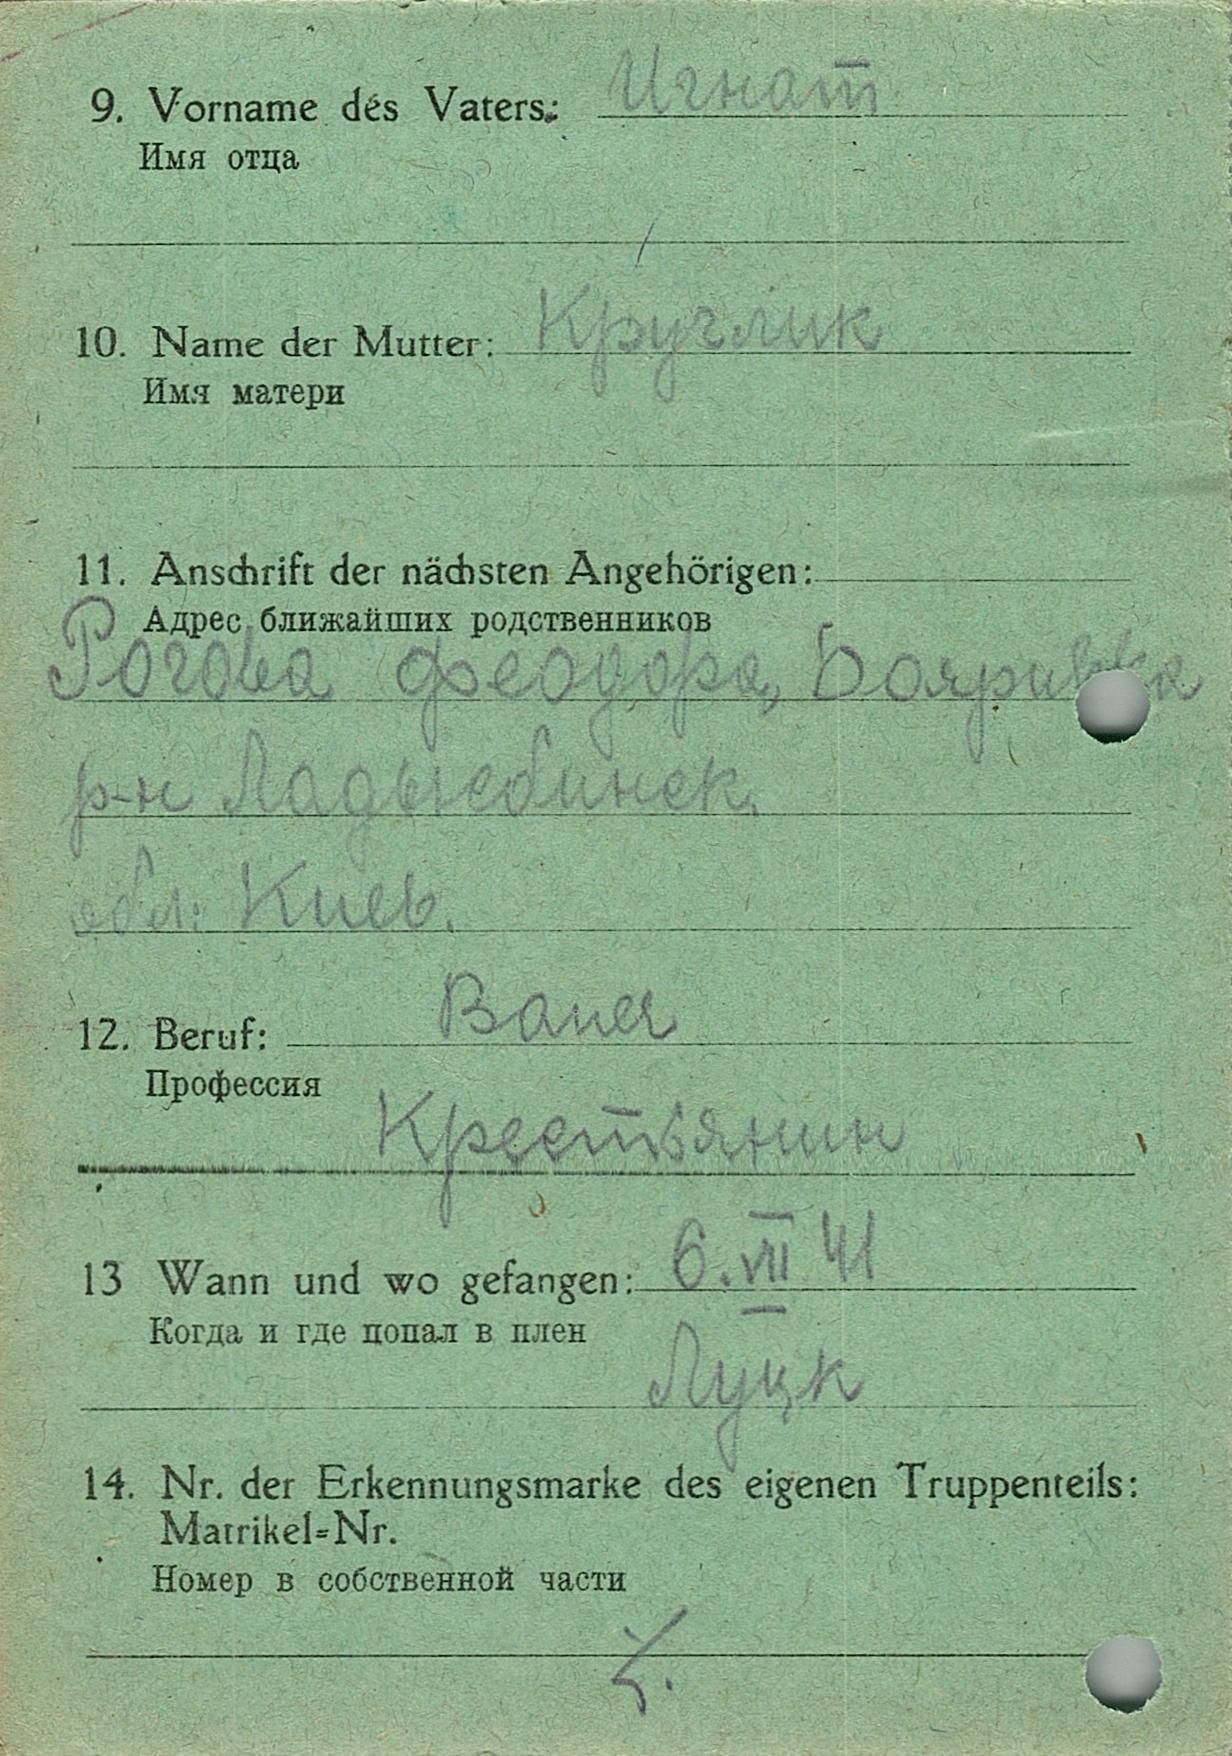 9. Vorname des Vaters: Игнат
Имя отца
10. Name der Mutter: Круглик
Имя матери
11. Anschrift der nächsten Angehörigen:
Адрес ближайших родственников
Рогова Феодора, Бояривка
р-н Ладыжбинск.
обл. Киев.
12. Beruf: Bauer
Профессия
Крестьянин
13 Wann und wo gefangen: 6.VII 41
Когда и где попал в плен
Луцк
14. Nr. der Erkennungsmarke des eigenen Truppenteils:
Matrikel=Nr.
Номер в собственной части